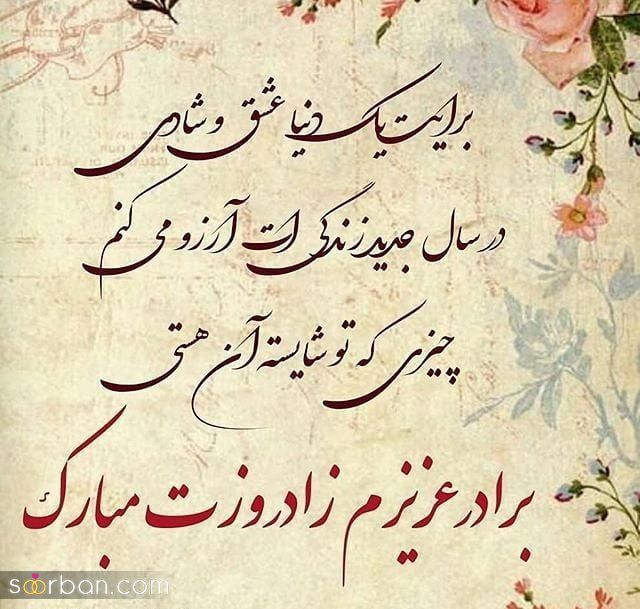 برایت یک دنیا عشق و شادی
در سال جدید زندگی ات آرزو می کنم
چیزی که تو شایسته آن هستی
برادر عزیزم زادروزت مبارک
soorban.com